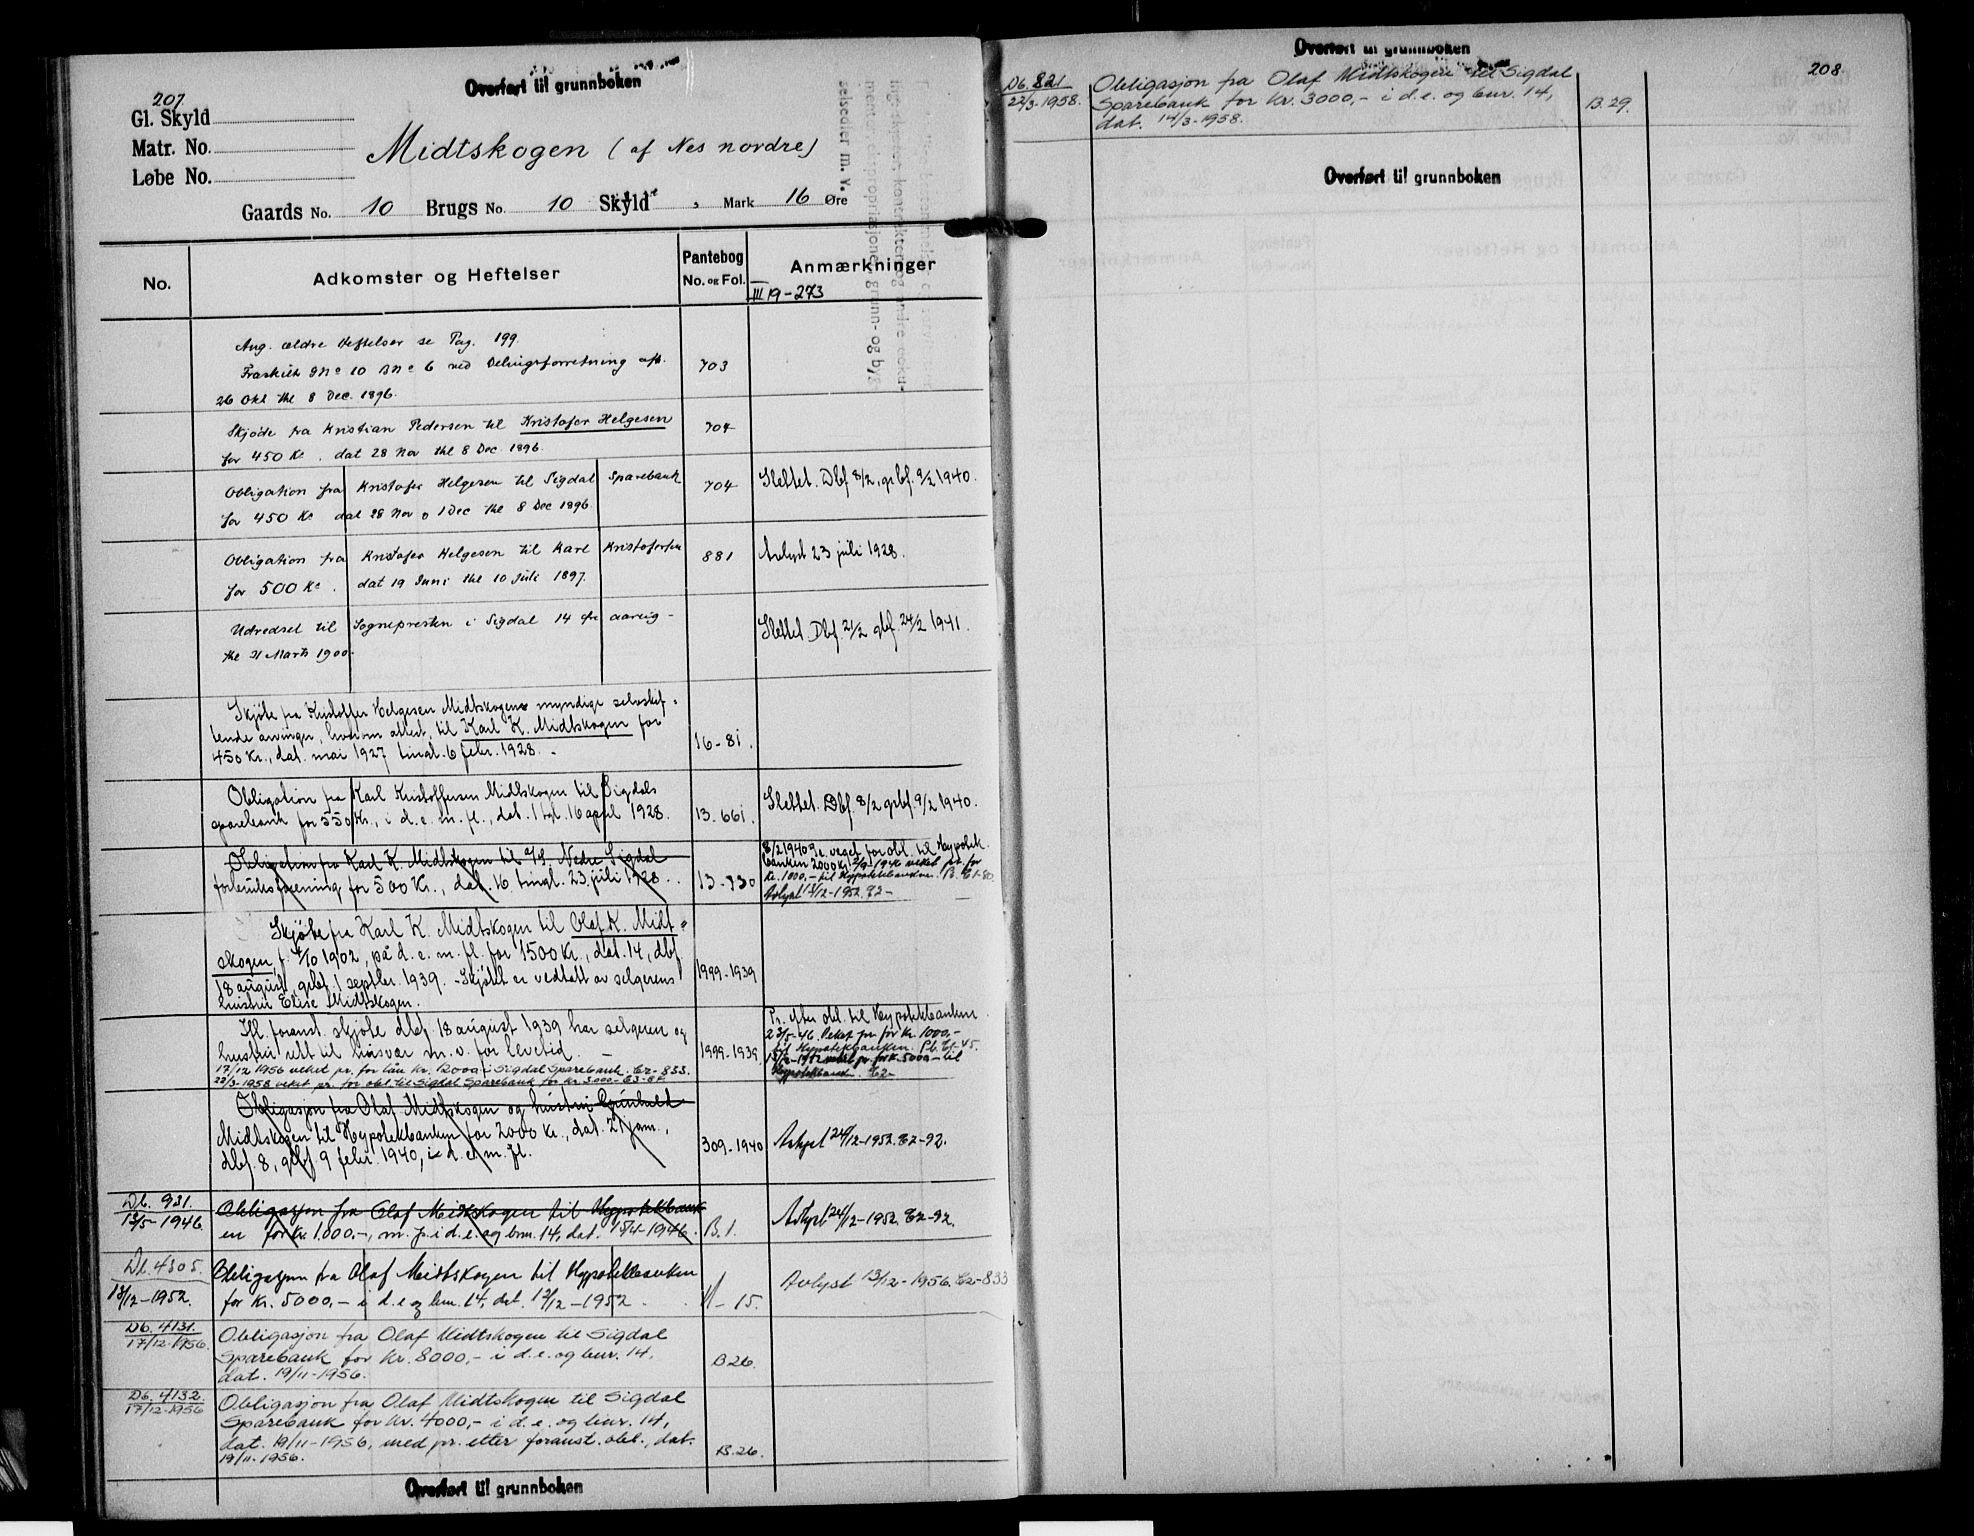 Overført til grunnboken
207.
Gl. Skyld
Matr. No.
Løbe No.
Midtskogen (af Nes nordre)
Gaards No. 10 Brugs No. 10 Skyld , Mark 16 Øre
No.
Adkomster og Heftelser
Pantebog
No. og Fol.
Anmærkninger
III 19-273
Ang. ældre Heftelser se Pag. 199.
Fraskilt GNo 10 BNo 6 ved Delingsforretning afh.
26 Okt thl 8 Dec. 1896.
703
Skjøde fra Kristian Pedersen til Kristofer Helgesen
for 450 Kr. dat 28 Nov thl 8 Dec 1896.
704
Obligation fra Kristofer Helgesen til Sigdal Sparebank
for 450 Kr dat 28 Nov o 1 Dec thl 8 Dec 1896.
704
Slettet. Dbf 8/2, grbf. 9/2 1940.
Obligation fra Kristofer Helgesen til Karl Kristofersen
for 500 Kr. dat 19 Juni thl 10 Juli 1897.
881
Avlyst 23 juli 1928.
Udredsel til Sognepresten i Sigdal 14 øre aarlig -
thl 21 Marts 1900.
Slettet Dbf. 21/2 gbf. 24/2 1941.
Skjøte fra Kristoffer Helgesen Midtskogens myndige selvskif-
tende arvinger, hvorom attest, til Karl K. Midtskogen for
450 Kr., dat. mai 1927 tingl. 6 febr. 1928. -
16-81.
Obligation fra Karl Kristoffersen Midtskogen til Sigdals
sparebank for 550 Kr., i d.e.m.fl., dat. 1 tgl. 16 april 1928.
13-661.
Slettet. Dbf. 8/2 grbf. 9/2 1940.
Obligation fra Karl K. Midtskogen til A/S. Nedre Sigdal
forbruksforening for 500 Kr., dat. 16 tingl. 23 juli 1928.
13-730
8/2 1940 veket for obl. til Hypotek
banken 2000 kr. veket pr. for
kr. 1000.- til Hypotekbanken.
Avlyst 12/12-1952.
Skjøte fra Karl K. Midtskogen til Olaf K. Midt-
skogen, f. 4/10 1902, på d.e.m.fl. for 1500 Kr., dat. 14, dbf.
18 august, grbf. 1 septbr. 1939. - Skjøtet er vedtatt av selgerens
hustru Elise Midtskogen.
1999-1939
Ifl. foranst. skjøte dbf. 18 august 1939 har selgeren og
hustru rett til husvær m.v. for levetid. -
17/12 1956 veket pr. for lån kr. 12000 i Sigdal Sparebank. C2-833.
22/3-1958 veket pr. for obl. til Sigdal Sparebank for kr. 3000
1999-1939
Pr. efter obl. til Hypotekbanken.
23/5-46 Veket pr. for kr. 1000.-
til Hypotekbanken.
veket pr. for kr. 5000.- til
Hypotekbanken.
Obligasjon fra Olaf Midtskogen og hustru Gunhild
Midtskogen til Hypotekbanken for 2000 kr., dat. 27 jan.,
dbf. 8, grbf. 9 febr. 1940, i d.e.m.fl.
309-1940
Avlyst 24/12-1952. C2-92.
Db. 931.
13/5-1946
Obligasjon fra Olaf Midtskogen til Hypotekbank
en for kr. 1.000.-, m. p. i d.e. og bnr. 14, dat.
B. 1.
Avlyst 24/12-1952. C2-92.
Db. 4305.
18/12-1952.
Obligasjon fra Olaf Midtskogen til Hypotekbanken
for kr. 5000,- i d.e og bnr. 14, dat. 12/12-1952.
15.
Avlyst 13/12-1956. C2-833
Db. 4131.
17/12-1956.
Obligasjon fra Olaf Midtskogen til Sigdal
Sparebank for kr. 8000,- i d.e. og bnr. 14,
dat. 19/11-1956.
B 26.
Db. 4132.
17/12-1956
Obligasjon fra Olaf Midtskogen til Sigdal
Sparebank for kr. 4000,- i d.e. og bnr. 14,
dat. 19/11-1956, med pr. etter foranst. obl., dat.
19/11-1956.
B. 26.
Overført til grunnboken
Overført til grunnboken
208
Db. 821
22/3-1958.
Obligasjon fra Olaf Midtskogen til Sigdal
Sparebank for kr. 3000,- i d.e. og bnr. 14,
dat. 14/3-1958.
B. 29.
Overført til grunnboken